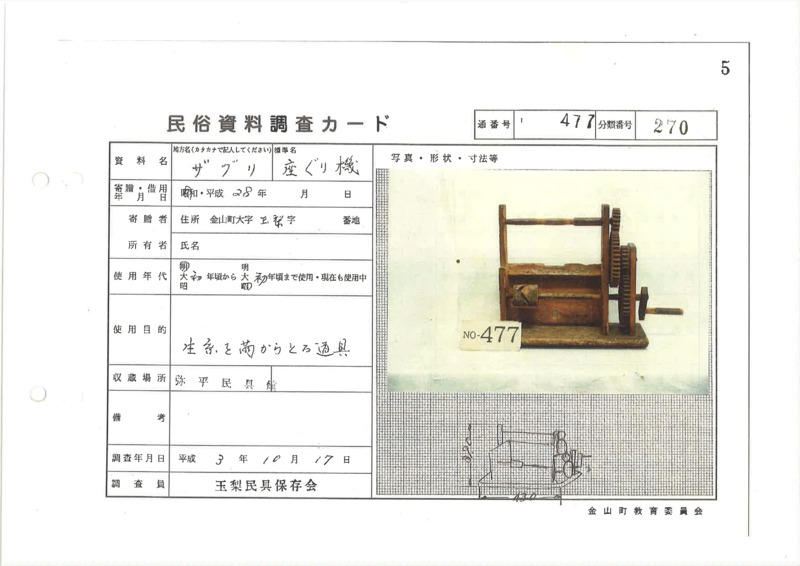 5
民俗資料調査カード
通番号 477 分類番号 270
資料名 地方名(カタカナで記入してください) ザグリ 標準名 座ぐり機
写真・形状・寸法等
寄贈・借用年月日 昭和・平成 28年 月 日
寄贈者 住所 金山町大字玉梨字 番地
所有者 氏名
使用年代 明大昭 初年頃から 明大昭 初年頃まで使用・現在も使用中
使用目的 生糸を繭からとる道具
収蔵場所 弥平民具館
備考
調査年月日 平成 3年 10月 17日
調査員 玉梨民具保存会
NO-477
430
金山町教育委員会